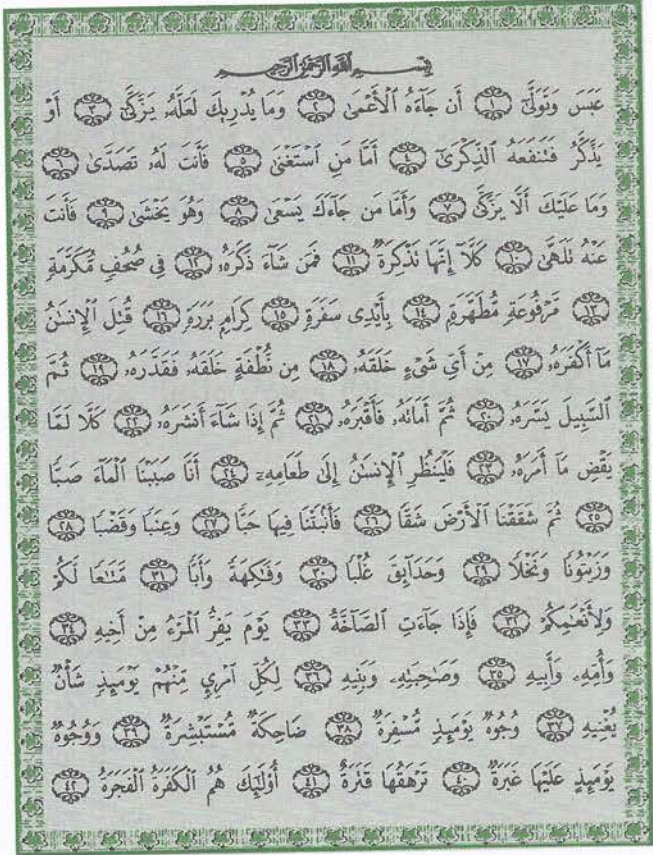 بِسْمِ ٱللَّهِ ٱلرَّحْمَٰنِ ٱلرَّحِيمِ
عَبَسَ وَتَوَلَّىٰٓ ﴿١﴾ أَن جَآءَهُ ٱلْأَعْمَىٰ ﴿٢﴾ وَمَا يُدْرِيكَ لَعَلَّهُۥ يَزَّكَّىٰٓ ﴿٣﴾ أَوْ
يَذَّكَّرُ فَتَنفَعَهُ ٱلذِّكْرَىٰٓ ﴿٤﴾ أَمَّا مَنِ ٱسْتَغْنَىٰ ﴿٥﴾ فَأَنتَ لَهُۥ تَصَدَّىٰ ﴿٦﴾
وَمَا عَلَيْكَ أَلَّا يَزَّكَّىٰ ﴿٧﴾ وَأَمَّا مَن جَآءَكَ يَسْعَىٰ ﴿٨﴾ وَهُوَ يَخْشَىٰ ﴿٩﴾ فَأَنتَ
عَنْهُ تَلَهَّىٰ ﴿١٠﴾ كَلَّآ إِنَّهَا تَذْكِرَةٌ ﴿١١﴾ فَمَن شَآءَ ذَكَرَهُۥ ﴿١٢﴾ فِى صُحُفٍ مُّكَرَّمَةٍ
﴿١٣﴾ مَّرْفُوعَةٍ مُّطَهَّرَةٍۭ ﴿١٤﴾ بِأَيْدِى سَفَرَةٍ ﴿١٥﴾ كِرَامٍۭ بَرَرَةٍ ﴿١٦﴾ قُتِلَ ٱلْإِنسَٰنُ
مَآ أَكْفَرَهُۥ ﴿١٧﴾ مِنْ أَىِّ شَىْءٍ خَلَقَهُۥ ﴿١٨﴾ مِن نُّطْفَةٍ خَلَقَهُۥ فَقَدَّرَهُۥ ﴿١٩﴾ ثُمَّ
ٱلسَّبِيلَ يَسَّرَهُۥ ﴿٢٠﴾ ثُمَّ أَمَاتَهُۥ فَأَقْبَرَهُۥ ﴿٢١﴾ ثُمَّ إِذَا شَآءَ أَنشَرَهُۥ ﴿٢٢﴾ كَلَّا لَمَّا
يَقْضِ مَآ أَمَرَهُۥ ﴿٢٣﴾ فَلْيَنظُرِ ٱلْإِنسَٰنُ إِلَىٰ طَعَامِهِۦٓ ﴿٢٤﴾ أَنَّا صَبَبْنَا ٱلْمَآءَ صَبًّا
﴿٢٥﴾ ثُمَّ شَقَقْنَا ٱلْأَرْضَ شَقًّا ﴿٢٦﴾ فَأَنۢبَتْنَا فِيهَا حَبًّا ﴿٢٧﴾ وَعِنَبًا وَقَضْبًا ﴿٢٨﴾
وَزَيْتُونًا وَنَخْلًا ﴿٢٩﴾ وَحَدَآئِقَ غُلْبًا ﴿٣٠﴾ وَفَٰكِهَةً وَأَبًّا ﴿٣١﴾ مَّتَٰعًا لَّكُمْ
وَلِأَنْعَٰمِكُمْ ﴿٣٢﴾ فَإِذَا جَآءَتِ ٱلصَّآخَّةُ ﴿٣٣﴾ يَوْمَ يَفِرُّ ٱلْمَرْءُ مِنْ أَخِيهِ ﴿٣٤﴾
وَأُمِّهِۦ وَأَبِيهِ ﴿٣٥﴾ وَصَٰحِبَتِهِۦ وَبَنِيهِ ﴿٣٦﴾ لِكُلِّ ٱمْرِئٍ مِّنْهُمْ يَوْمَئِذٍ شَأْنٌ
يُغْنِيهِ ﴿٣٧﴾ وُجُوهٌ يَوْمَئِذٍ مُّسْفِرَةٌ ﴿٣٨﴾ ضَاحِكَةٌ مُّسْتَبْشِرَةٌ ﴿٣٩﴾ وَوُجُوهٌ
يَوْمَئِذٍ عَلَيْهَا غَبَرَةٌ ﴿٤٠﴾ تَرْهَقُهَا قَتَرَةٌ ﴿٤١﴾ أُو۟لَٰٓئِكَ هُمُ ٱلْكَفَرَةُ ٱلْفَجَرَةُ ﴿٤٢﴾